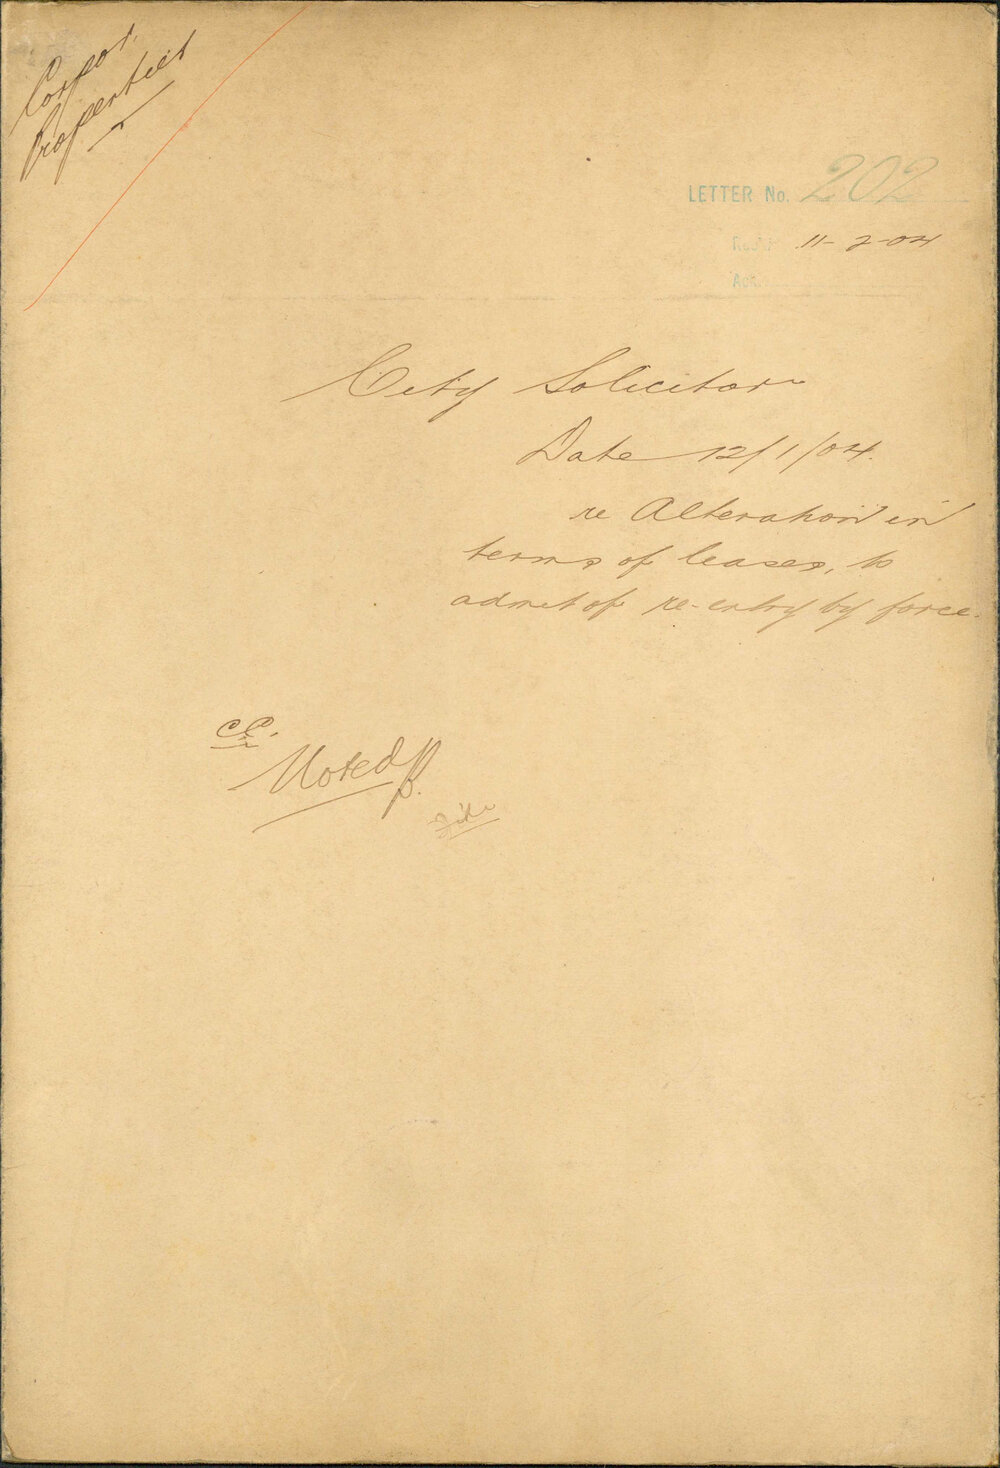 Corpor.
Properties
LETTER No. 202
Rec'd. 11-2-04
Ack.
City Solicitor
Date 12/1/04.
re Alteration in
terms of leases, to
admit of re-entry by force.
C.C.
Noted
File